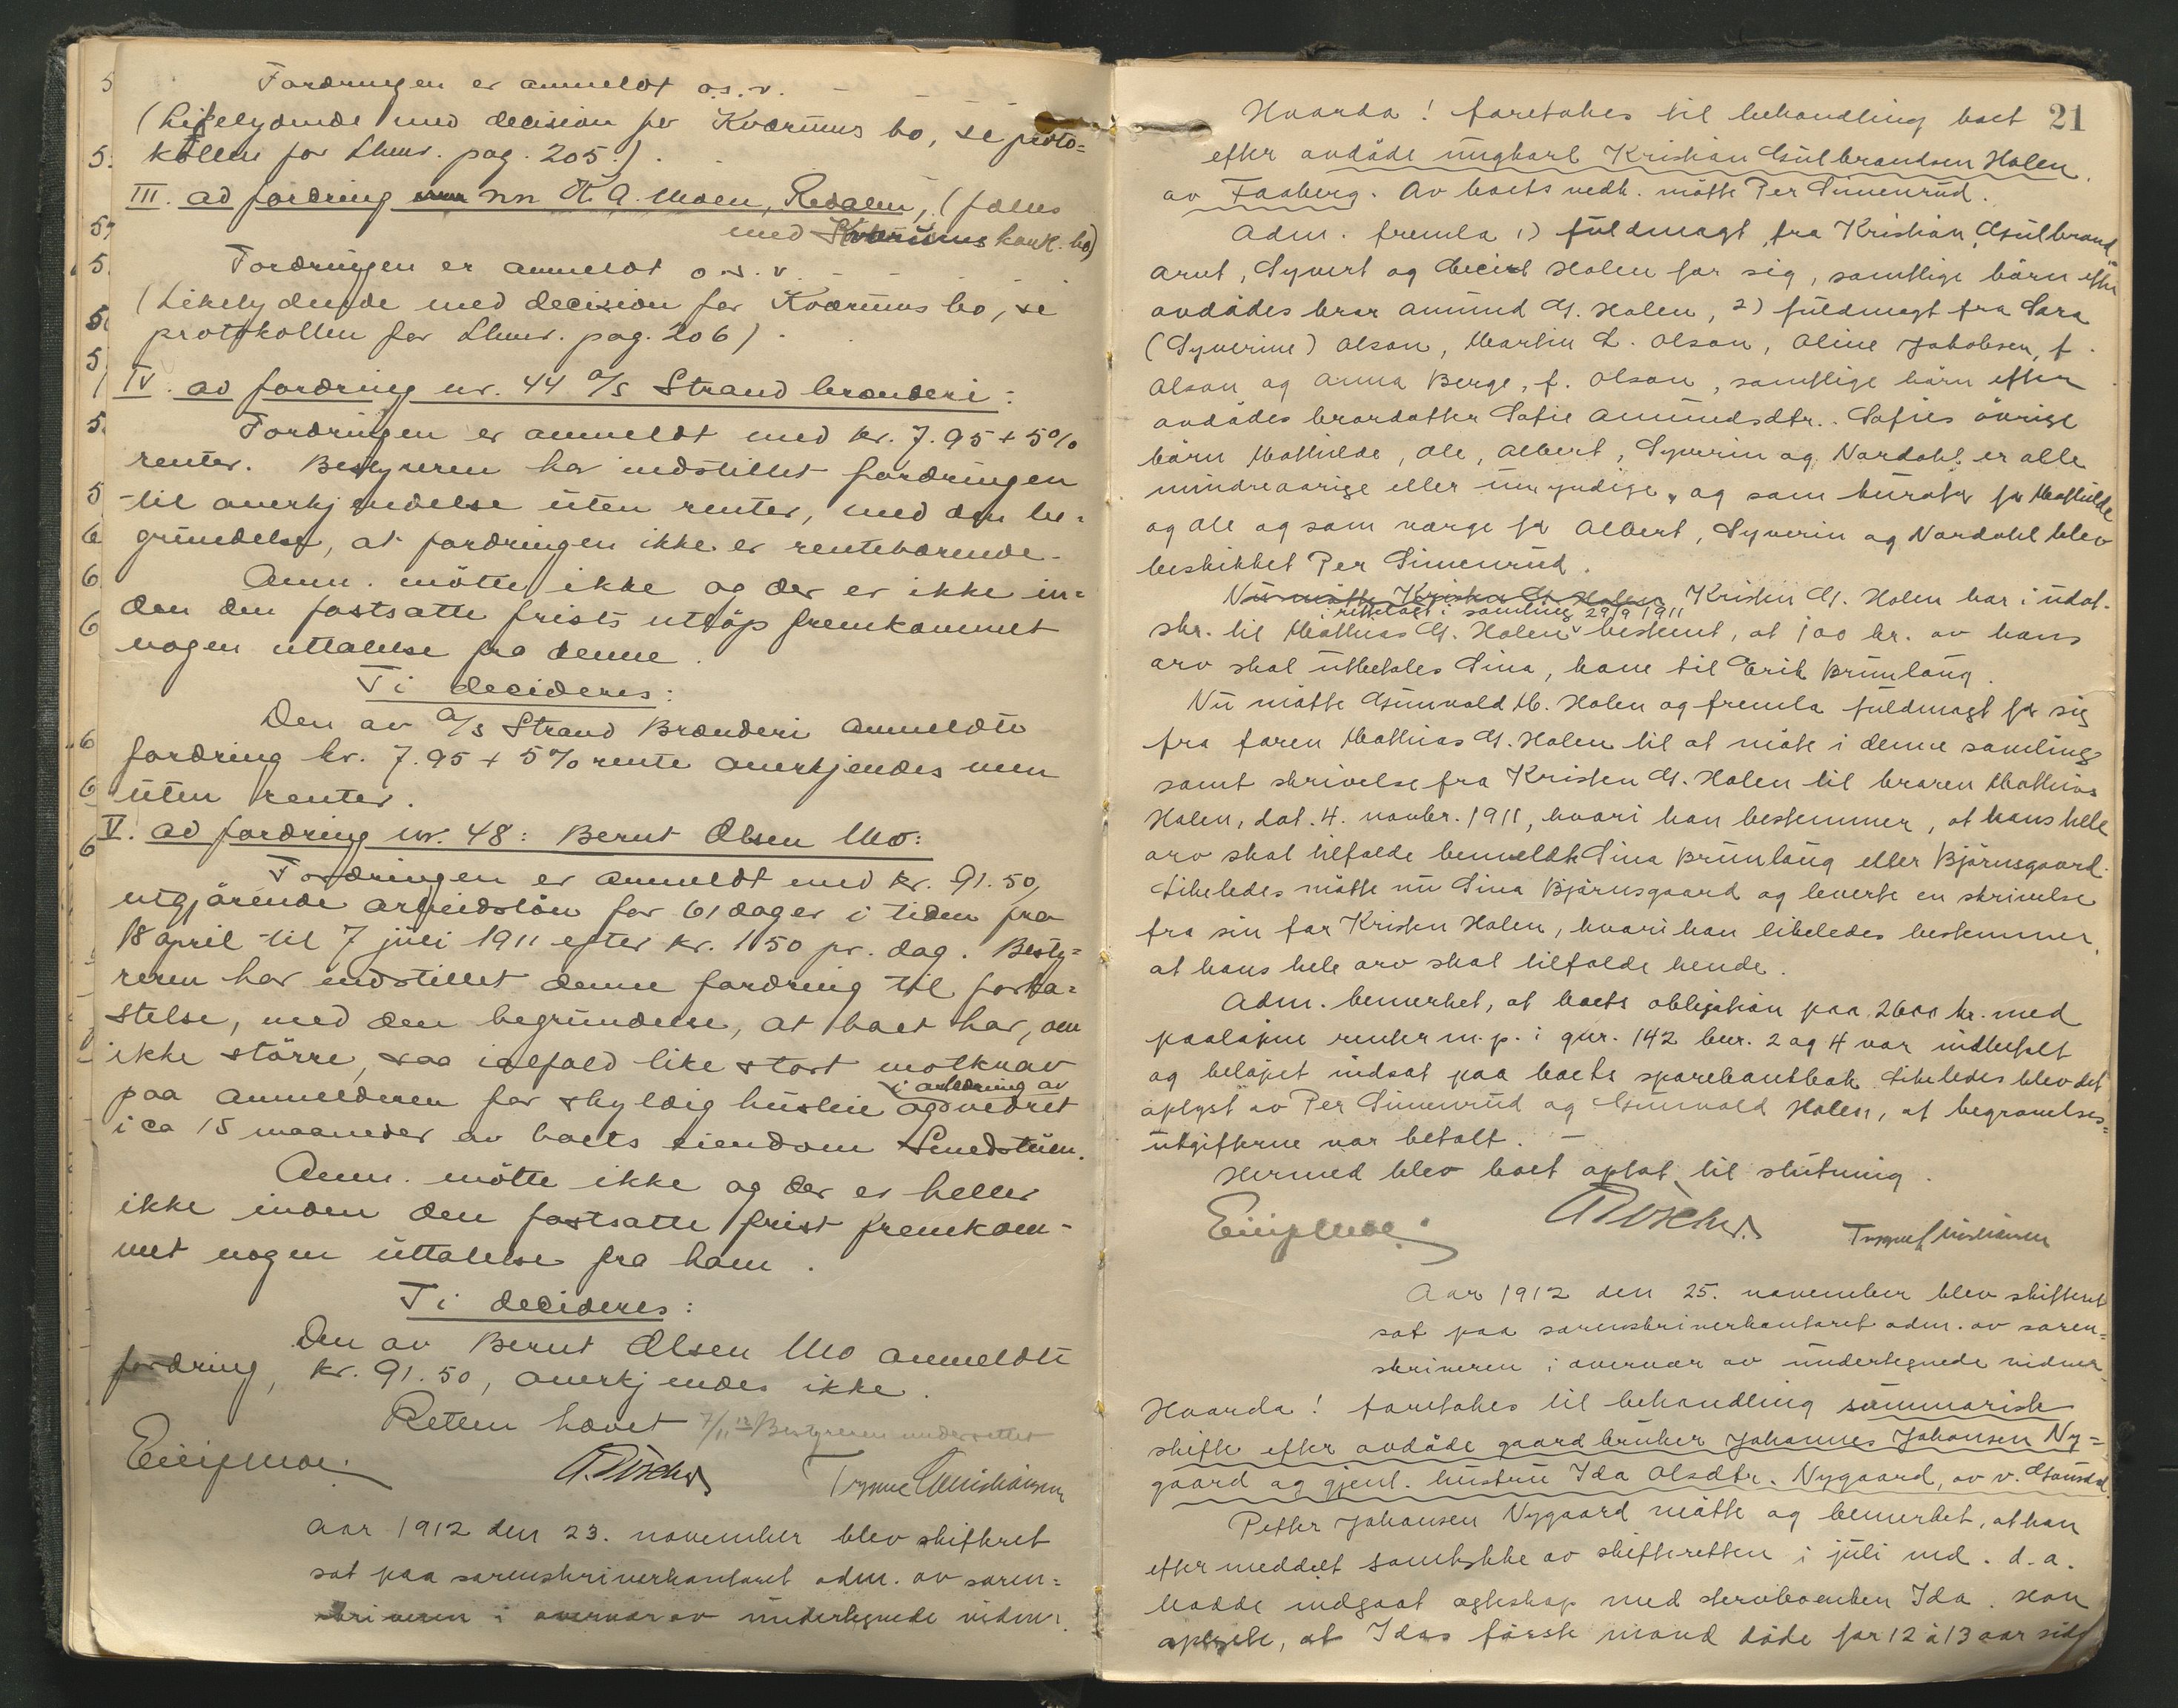 Fordringen er anmeldt o.s.v.
(Likelydende med decision for Kværnus bo, se proto=
kollen for Lhmr. pag. 205.).
III. ad fordring nr K. A. Moen, Redalen, (fælles
med Kværnus konk. bo)
Fordringen er anmeldt o.s.v.
(Likelydende med decision for Kværnus bo, se
protokollen for Lhmr. pag. 206).
IV. ad fordring nr. 44 A/S Strand brænderi:
Fordringen er anmeldt med kr. 7.95 + 5%
renter. Bestyreren har indstillet fordringen
til anerkjendelse uten renter, med den be=
grundelse, at fordringen ikke er rentebærende.
Anm. mötte ikke og der er ikke in=
den den fastsatte frists utløp fremkommet
nogen uttalelse fra denne.
Ti decideres:
Den av A/S Strand Brænderi anmeldte
fordring kr. 7.95 + 5% rente anerkjendes men
uten renter.
V. ad fordring nr. 48: Bernt Olsen Mo:
Fordringen er anmeldt med kr. 91.50,
utgjörende arbeidslön for 61 dager i tiden fra
18 april til 7 juli 1911 efter kr. 1.50 pr. dag. Besty=
reren har indstillet denne fordring til forka=
stelse, med den begrundelse, at boet har, om
ikke större, saa ialfald like stort motkrav
i anledning av
paa anmelderen for skyldig husleie og vedret
i ca 15 maaneder av boets eiendom Smedstuen.
Anm. mötte ikke og der er heller
ikke inden den fastsatte frist fremkom=
met nogen uttalelse fra ham.
Ti decideres:
Den av Bernt Olsen Mo anmeldte
fordring, kr. 91.50, anerkjendes ikke.
Retten hævet 7/11 12 Bestyreren underrettet
Trygve Christiansen
Aar 1912 den 23. november blev skifteret
sat paa sorenskriverkontoret adm. av soren=
skriveren i overvær av undertegnede vidner.
21
Hvorda! foretokes til behandling boet
efter avdöde ungkarl Kristian Gulbrandsen Holen
av Faaberg. Av boets vedk. mötte Per Simenrud.
Adm. fremla 1) fuldmagt fra Kristian, Gulbrand,
Arnt, Syvert og Sidsel Holen for sig, samtlige börn efter
avdödes bror Amund G. Holen, 2) fuldmagt fra Sara
(Syverine) Olson, Martin L. Olson, Oline Jakobsen, f.
Olson og Anna Berge, f. Olson, samtlige börn efter
avdödes brordatter Sofie Amundsdtr.. Sofies övrige
börn Mathilde, Ole, Albert, Syverin og Nordahl er alle
mindreaarige eller umyndige, og som kurator for Mathilde
og Ole og som værge for Albert, Syverin og Nordahl blev
beskikket Per Simenrud.
Nu mötte Kristen G. Holen Kristen G. Holen har i udat.
fremlagt i samling 29/9 1911
skr. til Mathias G. Holen bestemt, at 100 kr. av hans
arv skal utbetales Sina, kone til Erik Brunlaug.
Nu mötte Gunvald M. Holen og fremla fuldmagt for sig
fra faren Mathias G. Holen til at möte i denne samling
samt skrivelse fra Kristen G. Holen til broren Mathias
Holen, dat. 4. novbr. 1911, hvori han bestemmer, at hans hele
arv skal tilfalde bemeldte Sina Brunlaug eller Björnsgaard.
Likeledes mötte nu Sina Björnsgaard og leverte en skrivelse
fra sin far Kristen Holen, hvori han likeledes bestemmer,
at hans hele arv skal tilfalde hende.
Adm. bemerket, at boets obligation paa 2600 kr. med
paalöpne renter m. p. i gnr. 142 bnr. 2 og 4 var indbetalt
og belöpet indsat paa boets sparebankbok. Likeledes blev det
oplyst av Per Simenrud og Gunvald Holen, at begravelses=
utgifterne var betalt. —
Hermed blev boet optat til slutning.
Trygve Christiansen
Aar 1912 den 25. november blev skifteret
sat paa sorenskriverkontoret adm. av soren=
skriveren i overvær av undertegnede vidner.
Hvorda! foretokes til behandling summarisk
skifte efter avdöde gaardbruker Johannes Johansen Ny=
gaard og gjenl. hustru Ida Olsdtr. Nygaard, av v. Gausdal.
Petter Johansen Nygaard mötte og bemerket, at han
efter meddelt samtykke av skifteretten i juli md. d.a.
hadde indgaat egteskap med stervboenken Ida. Han
oplyste, at Idas förste mand döde for 12 à 13 aar siden